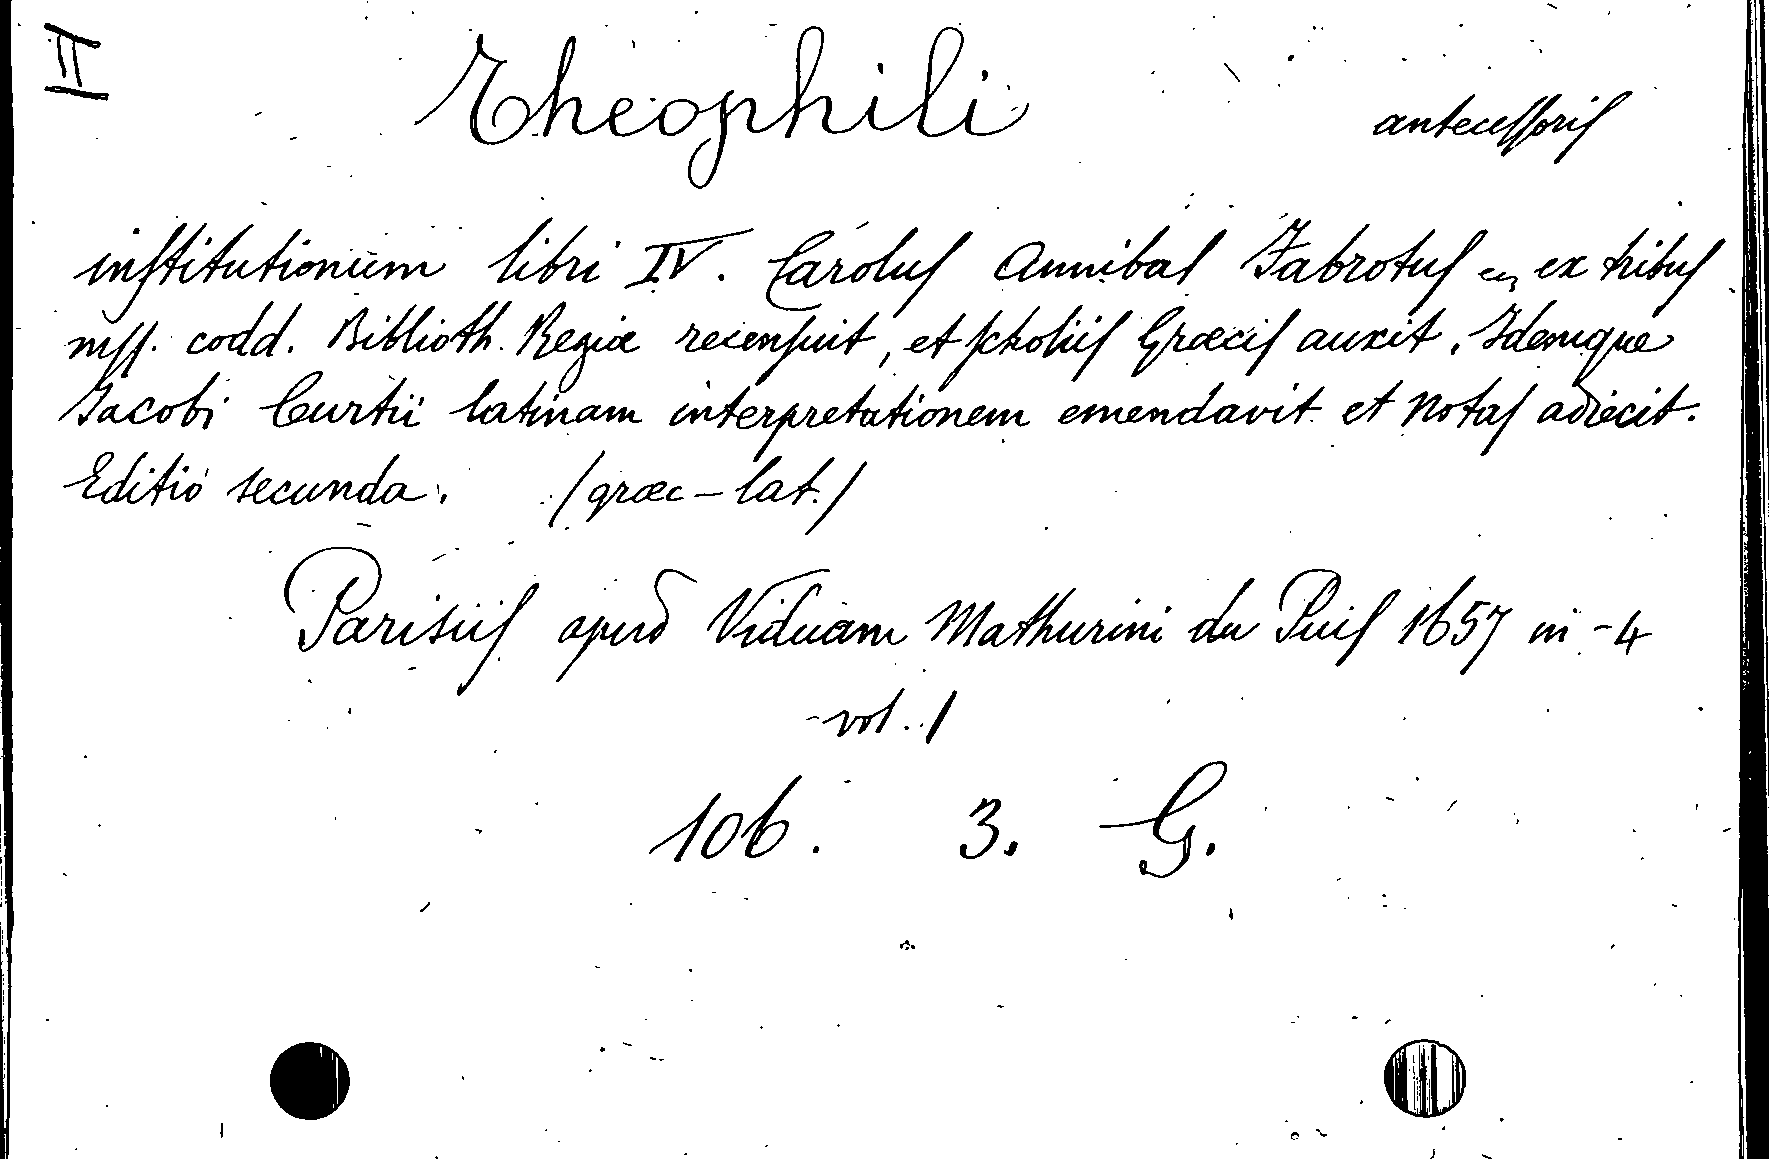 II
Theophili antecessoris
institutionum libri IV. Carolus Annibal Fabrotus ex tribus
mss. codd. Biblioth. Regiæ recensuit, et scholiis Græcis auxit. Idemque
Jacobi Curtii latinam interpretationem emendavit et notas adiecit.
Editio secunda. /græc-lat./
Parisiis apud Viduam Mathurini du Puis 1657 in-4
vol. 1
106. 3. G.